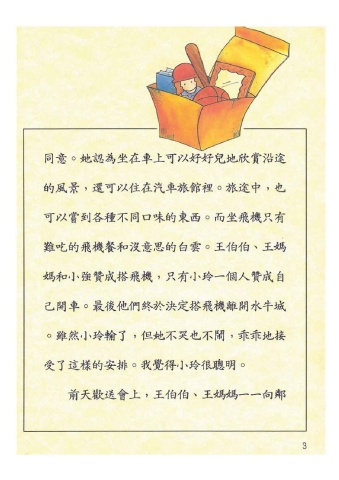 同意。她認為坐在車上可以好好兒地欣賞沿途
的風景，還可以住在汽車旅館裡。旅途中，也
可以嘗到各種不同口味的東西。而坐飛機只有
難吃的飛機餐和沒意思的白雲。王伯伯、王媽
媽和小強贊成搭飛機，只有小玲一個人贊成自
己開車。最後他們終於決定搭飛機離開水牛城
。雖然小玲輸了，但她不哭也不鬧，乖乖地接
受了這樣的安排。我覺得小玲很聰明。
前天歡送會上，王伯伯、王媽媽一一向鄰
3